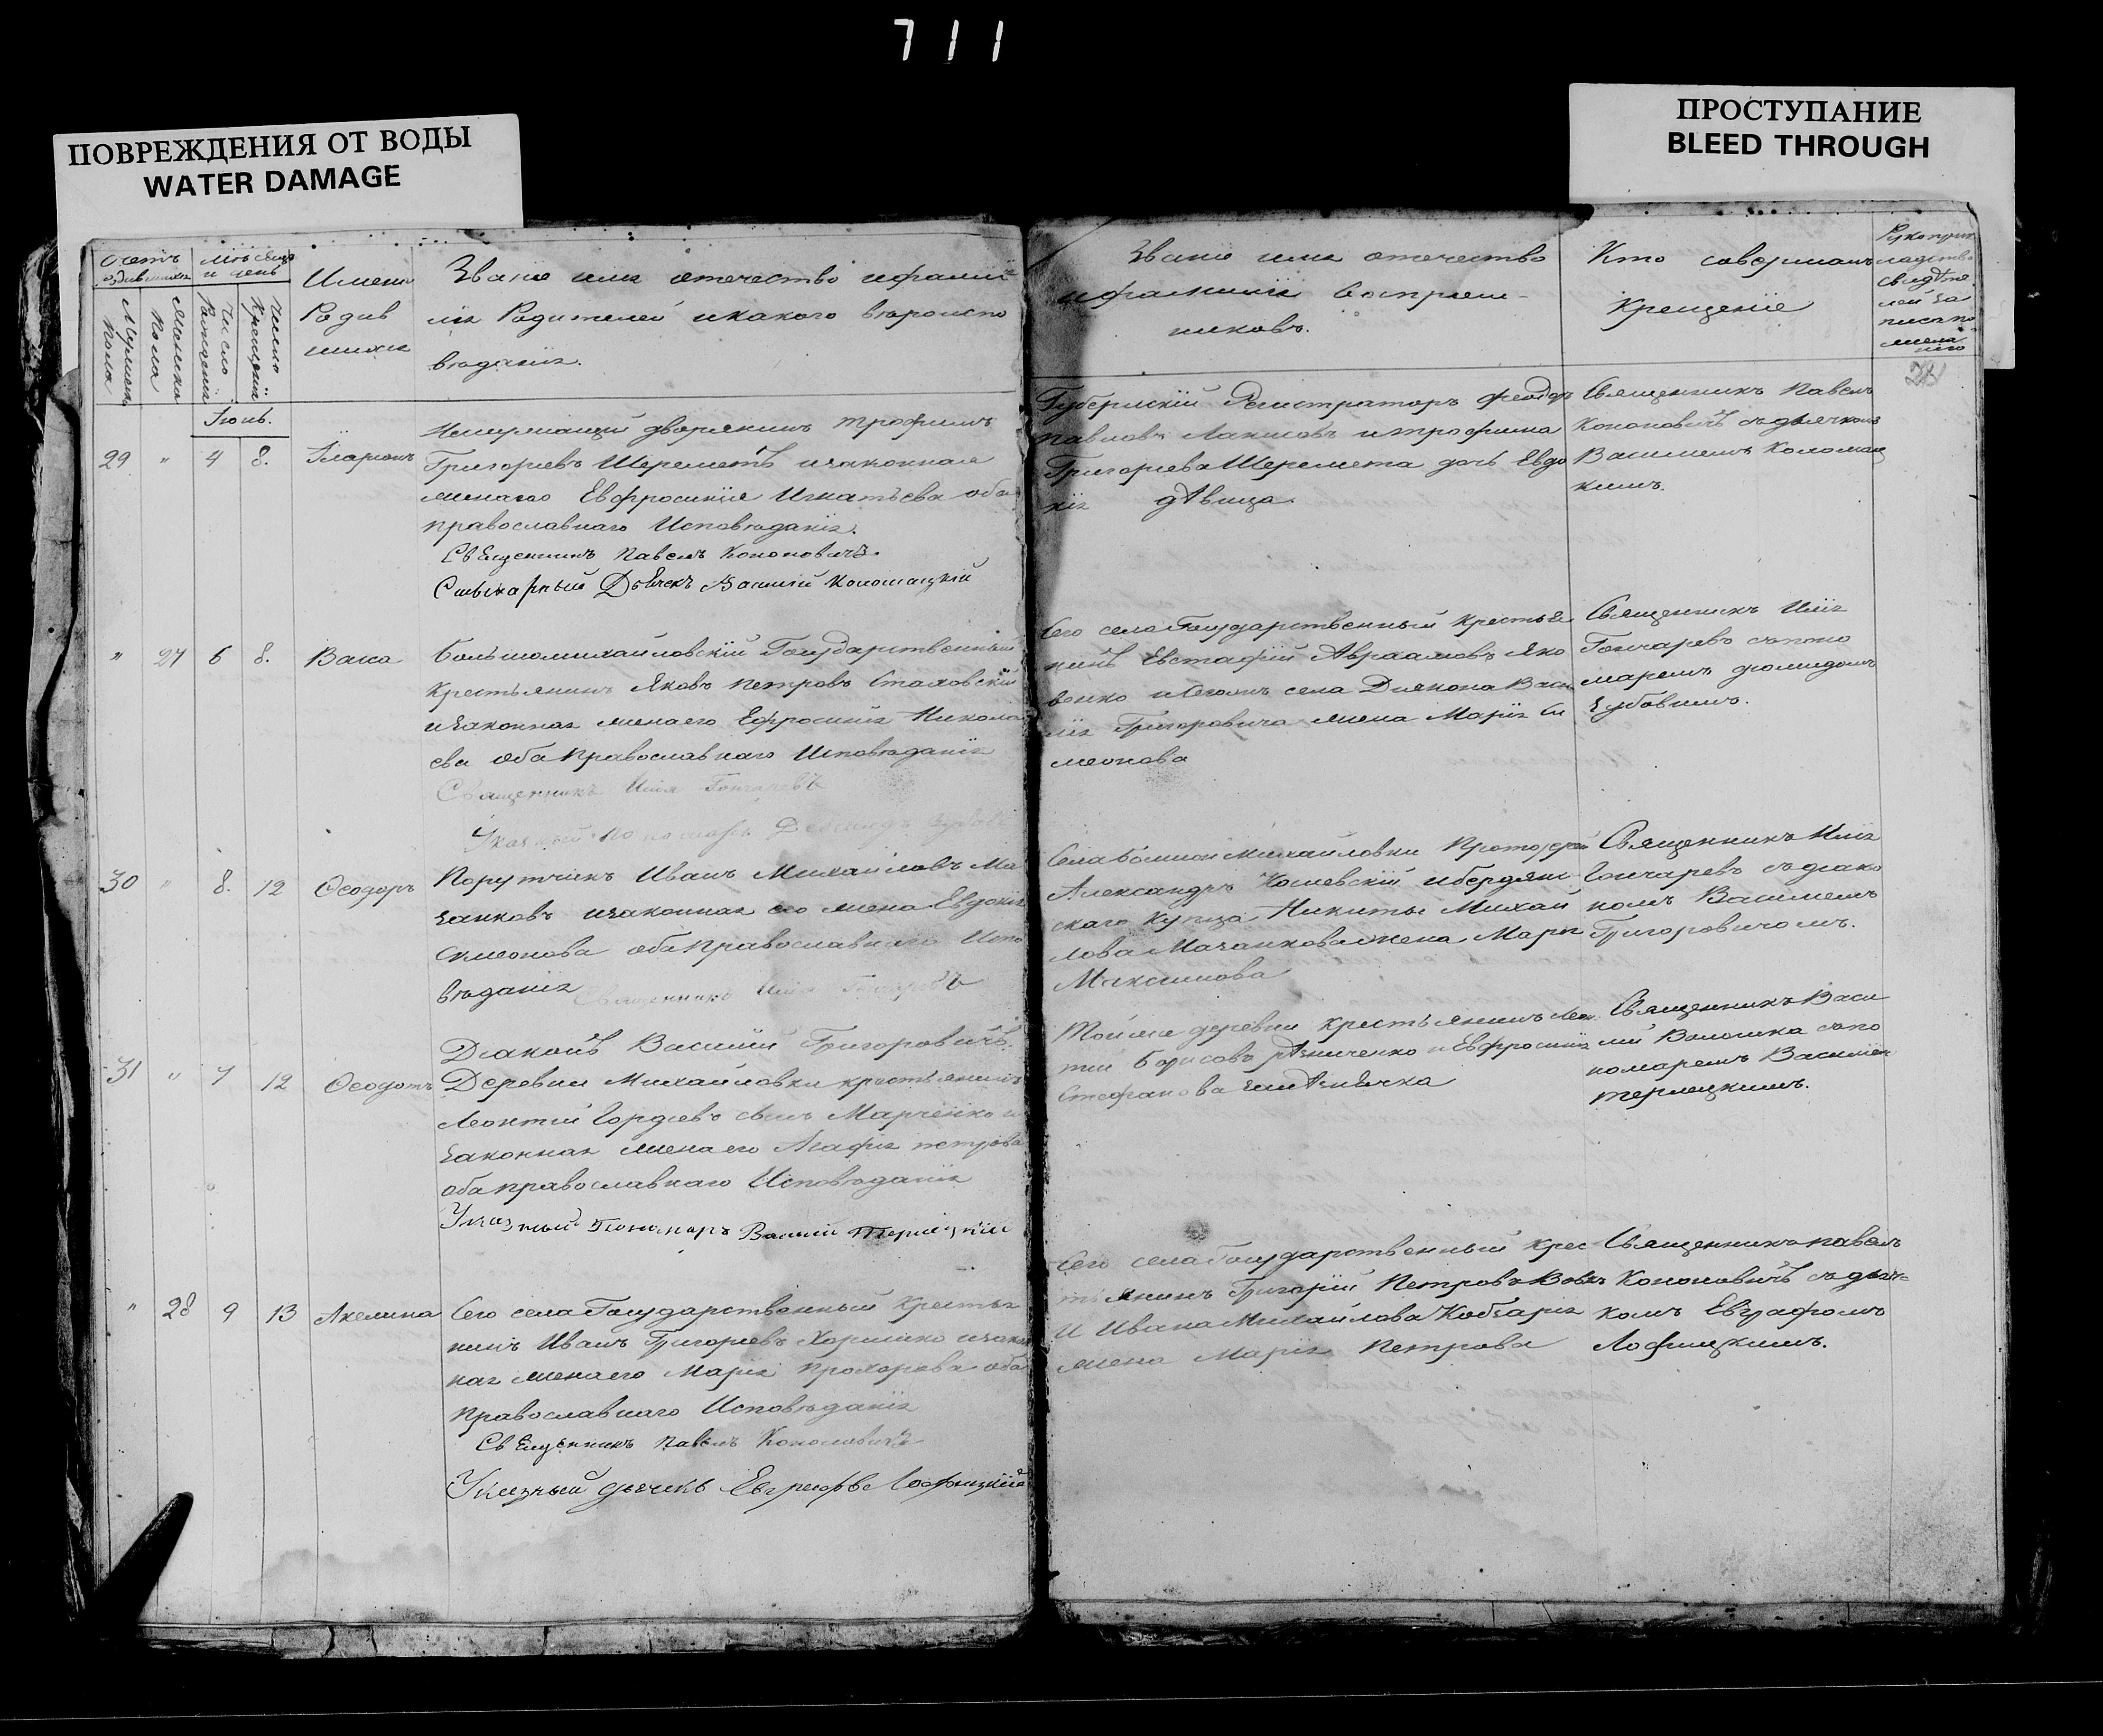 711
ПОВРЕЖДЕНИЯ ОТ ВОДЫ
WATER DAMAGE
ПРОСТУПАНИЕ
BLEED THROUGH
Счетъ
Мѣсяцъ
и день
Мужеска
Пола
Женска
Пола
Число
Рожденія
Число
Крещенія
Имена
Родив
шихся
Званіе имя отечество и фамил
лія Родителей и какого вѣроиспо
вѣданія.
Званіе имя отечество
и фамилія воспріем-
никовъ.
Кто совершалъ
Крещеніе
28
Іюнь.
29 " 4 8. Іларіонъ
дворянинъ Трофимъ
Григорьевъ Шереметъ и законная
жена его Евфросинія Игнатьева оба
православнаго Исповѣданія.
Священникъ Павелъ Кононовичъ.
Дьячекъ Василій Коломацкій
Губернскій Регистраторъ Феодоръ
Павловъ и Трофима
Григорьева Шеремета дочь Евдо
кія дѣвица.
Священникъ Павелъ
Кононовичъ съ дьячкомъ
Василіемъ Коломац
кимъ.
" 27 6 8. Васса
Большомихайловскій Государственный
крестьянинъ Яковъ Петровъ Стаховскій
и законная жена его Ефросинія Никола
ева оба Православнаго Исповѣданія
Священникъ Илія Гончаревъ
Сего села Государственный крестья
нинъ Евстафій Авраамовъ Яко
венко и сего села Діякона Васи
лія Григоровича жена Марія Си
меонова
Священникъ Илія
Гончаревъ съ поно
маремъ
Зубовимъ.
30 " 8. 12 Ѳеодоръ
Порутчикъ Иванъ Михайловъ Ма
занковъ и законная его жена Евдокія
Симеонова оба православнаго Испо
вѣданія Священникъ Илія Гончаревъ
Діаконъ Василій Григоровичъ.
Села Большой Михайловки Протоіерей
Александръ и бердян
скаго купца Никиты Михай
лова Мазанкова жена Марія
Максимова
Священникъ Илія
Гончаревъ съ діако
номъ Василіемъ
Григоровичомъ.
31 " 7 12 Ѳеодотъ
Деревни Михайловки крестьянинъ
Леонтій Гордѣевъ сынъ Марченко и
законная жена его Агафія Петрова
оба православнаго Исповѣданія
Указный Пономарь Василій Терлецкій
Той же деревни крестьянинъ
Борисовъ Рѣзниченко и Евфросинія
Стефанова
Священникъ Васи
лій Волошка съ по
номаремъ Василіемъ
Терлецкимъ.
" 28 9 13 Акелина
Сего села Государственный крестья
нинъ Иванъ Григорьевъ и закон
ная жена его Марія Прохорова оба
Православнаго Исповѣданія
Священникъ Павелъ Кононовичъ
Указный дьячекъ Евграфъ Лофицкій
Сего села Государственный крес
тьянинъ Григорій Петровъ Вовкъ
и Ивана Михайлова Кобзаря
жена Марія Петрова
Священникъ Павелъ
Кононовичъ съ дьяч-
комъ Евграфомъ
Лофицкимъ.